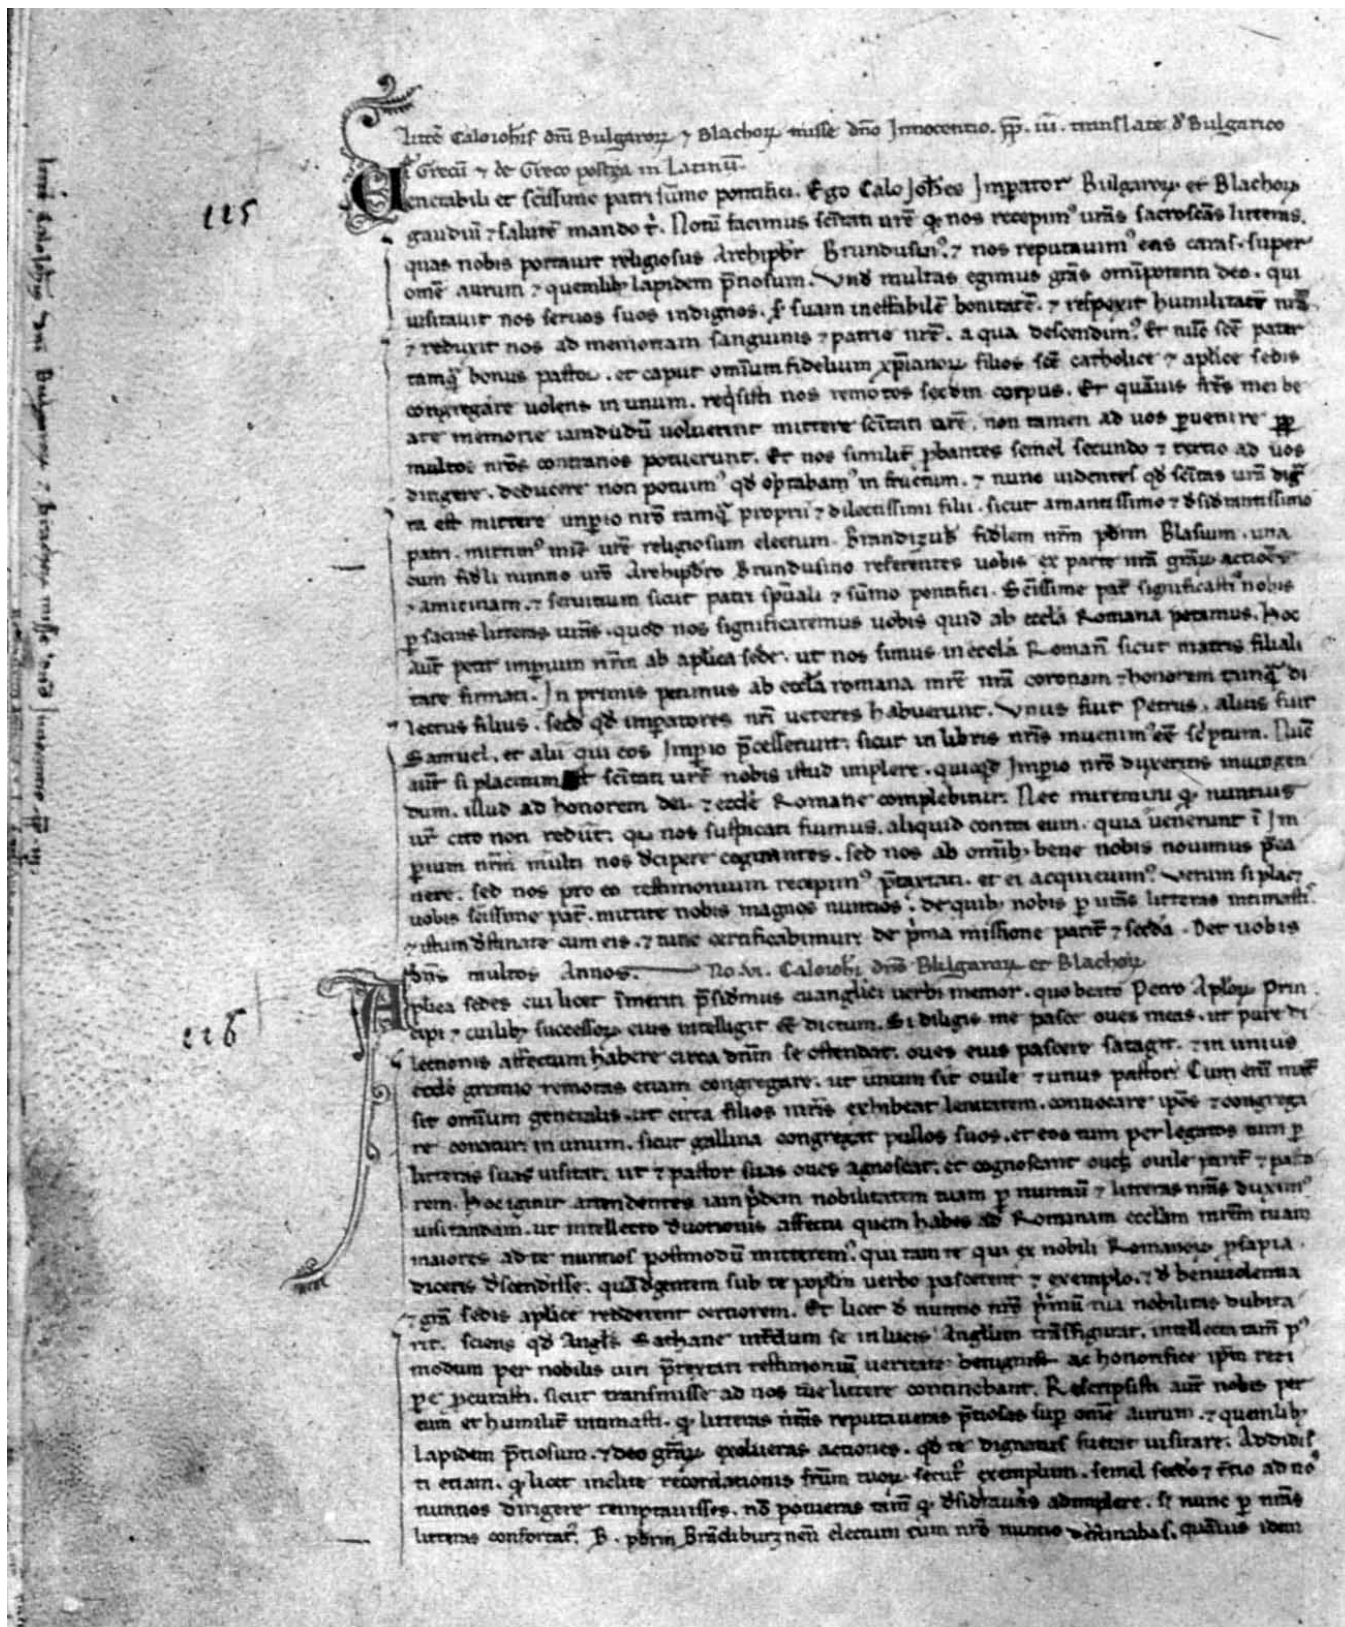 Littere Caloiohis dni Bulgarorum et Blachorum misse dno Innocentio. pp. iii. translate de Bulgarico
in Grecum et de Greco postea in Latinum.
115
Venerabili et scissimo patri summo pontifici. Ego Calo Johes Imperator Bulgarorum et Blachorum
gaudium et salutem mando t. Notum facimus scitati vre qd nos recepimus vras sacroscas litteras.
quas nobis portavit religiosus Archipbr Brundusinus. et nos reputavimus eas caras super
omne aurum et quemlibet lapidem pretiosum. Unde multas egimus gras omnipotenti deo. qui
visitavit nos servos suos indignos. scdm suam ineffabilem bonitatem. et respexit humilitatem nram
et reduxit nos ad memoriam sanguinis et patrie nre. a qua descendimus. Et nunc sce pater
tamqua bonus pastor. et caput omnium fidelium xpianorum filios sce catholice et aplice sedis
congregare volens in unum. requisisti nos remotos secdm corpus. Et quamvis fres mei be
ate memorie iamdudum voluerint mittere scitati vre. non tamen ad vos pervenire pp
multos nros contrarios potuerunt. Et nos similiter probantes semel secundo et tertio ad vos
dirigere. deducere non potuimus qd optabamus in fructum. et nunc videntes qd scitas vra digna
ta est mittere imperio nro tamqua proprii et dilectissimi filii. sicut amantissimo et desiderantissimo
patri. mittimus vre religiosum electum Brandizub fidelem nrm pbrm Blasium. una
cum fideli nuntio vro Archipbro Brundusino referentes vobis ex parte nra grarum actiones
et amicitiam. et servitium sicut patri spuali et summo pontifici. Scissime pat significasti nobis
per sacras litteras vras. quod nos significaremus vobis quid ab eccla Romana petamus. Hoc
aut petit imperium nrm ab aplica sede. ut nos simus in eccla Roman sicut matris filiali
tate firmati. In primis petimus ab eccla romana mre nra coronam et honorem tamqua di
lectus filius. secd qd imperatores nri veteres habuerunt. Unus fuit Petrus. alius fuit
Samuel. et alii qui eos Imperio precesserunt. sicut in libris nris invenimus esse scriptum. Nunc
aut si placitum est scitati vre nobis istud implere. quicquid Imperio nro duxeritis iniungen
dum. illud ad honorem dei. et eccle Romane complebitur. Nec miremini quod nuntius
vr cito non rediit. quia nos suspicati fuimus. aliquid contra eum. quia venerunt in Im
perium nrm multi nos decipere cogitantes. sed nos ab omnibus bene nobis novimus preca
vere. sed nos pro eo testimonium recepimus Pretaxtati. et ei acquievimus. Verum si placet
vobis scissime pat. mittite nobis magnos nuntios. de quibus nobis per vras litteras intimastis.
et istum destinate cum eis. et tunc certificabimur de prima missione pariter et secda. Det vobis
dns multos Annos. Caloiohi dno Bulgarorum et Blachorum
116
Aplica sedes cui licet immeriti presidemus evanglici verbi memor. quo beato Petro Aplorum Prin
cipi et cuilibet successorum eius intelligit esse dictum. Si diligis me pasce oves meas. ut pure di
lectionis affectum habere circa dnm se ostendat. oves eius pascere satagit. et in unius
eccle gremio remotas etiam congregare. ut unum sit ovile et unus pastor. Cum enim mat
sit omnium generalis. ut circa filios matris exhibeat lenitatem. convocare ipsos et congrega
re conatur in unum. sicut gallina congregat pullos suos. et eos tum per legatos tum per
litteras suas visitat. ut et pastor suas oves agnoscat. et cognoscant oves ovile pariter et pasto
rem. Hoc igitur attendentes iam pridem nobilitatem tuam per nuntium et litteras nras duximus
visitandam. ut intellecto devotionis affectu quem habes ad Romanam ecclam mrem tuam
maiores ad te nuntios postmodum mitteremus. qui tam te qui ex nobili Romanorum prosapia
diceris descendisse. quam gentem sub te populum verbo pascerent et exemplo. et de benivolentia
et gra sedis aplice redderent certiorem. Et licet de nuntio nro primum tua nobilitas dubita
rit. sciens qd Angls Sathane interdum se in lucis Anglum transfigurat. intellecta tam post
modum per nobilis viri Pretextati testimonium veritate benigniter ac honorifice ipm reci
pe procurasti. sicut transmisse ad nos tue littere continebant. Rescripsisti aut nobis per
eum et humiliter intimasti. quod litteras nras reputaveras pretiosas super omne aurum. et quemlibet
lapidem pretiosum. et deo grarum exolveras actiones. qd te dignatus fuerat visitare. Addidis
ti etiam. quod licet inclite recordationis frum tuorum secutus exemplum. semel secdo et tertio ad nos
nuntios dirigere temptavisses. non potueras tam quod desideravas adimplere. sed nunc per nras
litteras confortatus. B. pbrm Brandiburznem electum cum nro nuntio destinabas. quamvis idem